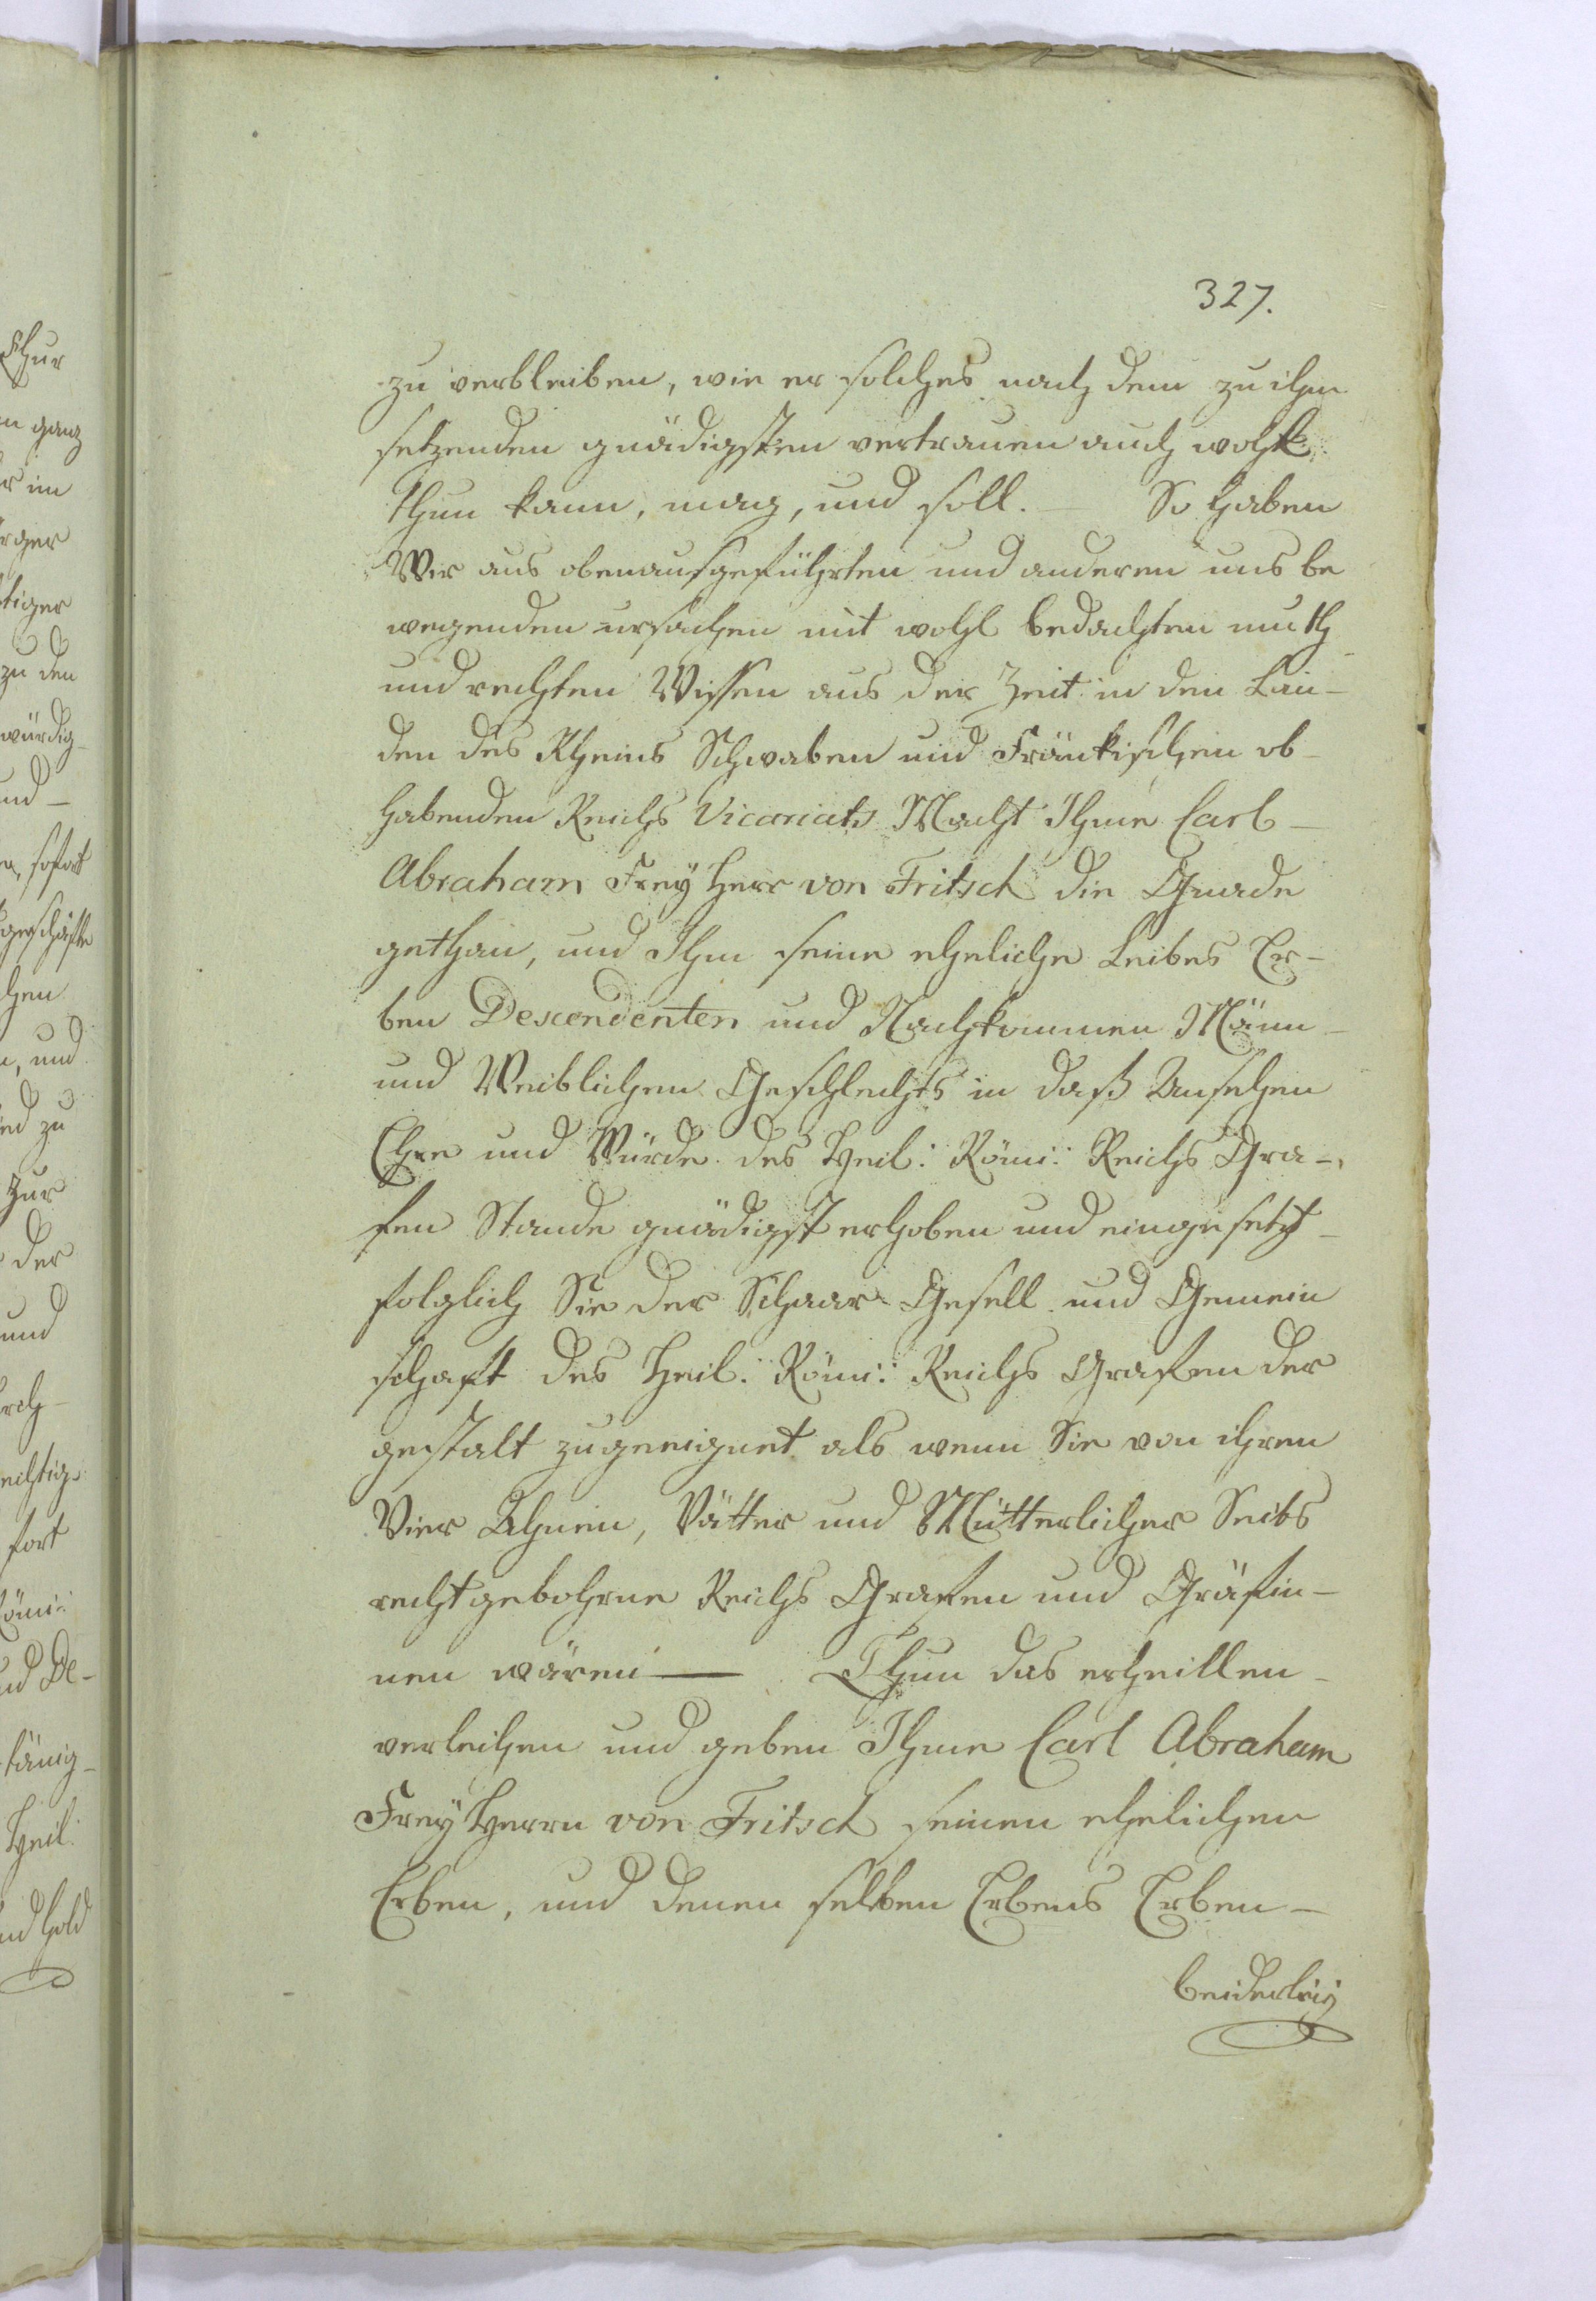 327.
zu verbleiben, wie er solches nach dem zu ihm
setzenden gnädigsten vertrauen auch wohl
thun kann, mag, und soll. — So haben
Wir aus obenausgeführten und anderen uns be
wegenden ursachen mit wohl bedachten muth
und rechten Wissen aus der Zeit in den Lan-
den des Rheins Schwaben und Fränkischen ob-
habenden Reichs Vicariats Macht Ihme Carl-
Abraham Frey Herr von Fritsch die Gnade
gethan, und Ihm seine eheliche Leibes Er-
ben Descendenten und Nachkommen Mann-
und Weiblichen Geschlechts in daß Ansehen
Ehre und Würde des Heil: Röm: Reichs Gra-
fen Stande gnädigst erhoben und eingesetzt-
folglich Sie der Schaar Gesell und Gemein
schaft des Heil: Röm: Reichs Grafen der
gestalt zugeeignet als wenn Sie von ihren
Vier Ahnen, Vätter und Mütterlicher Seits
recht gebohrne Reichs Grafen und Gräfin-
nen wären — Thun das ertheillen-
verleihen und geben Ihme Carl Abraham
Frey Herrn von Fritsch seinen ehelichen
Erben, und denen selben Erbens Erben-
beiderley
Chur
ganz
im
tiger
zu den
würdig-
und-
sofort
geschäfte
chen
und
zu
zur
der
und
fort
Röm:
und De-
Heil:
und Gold